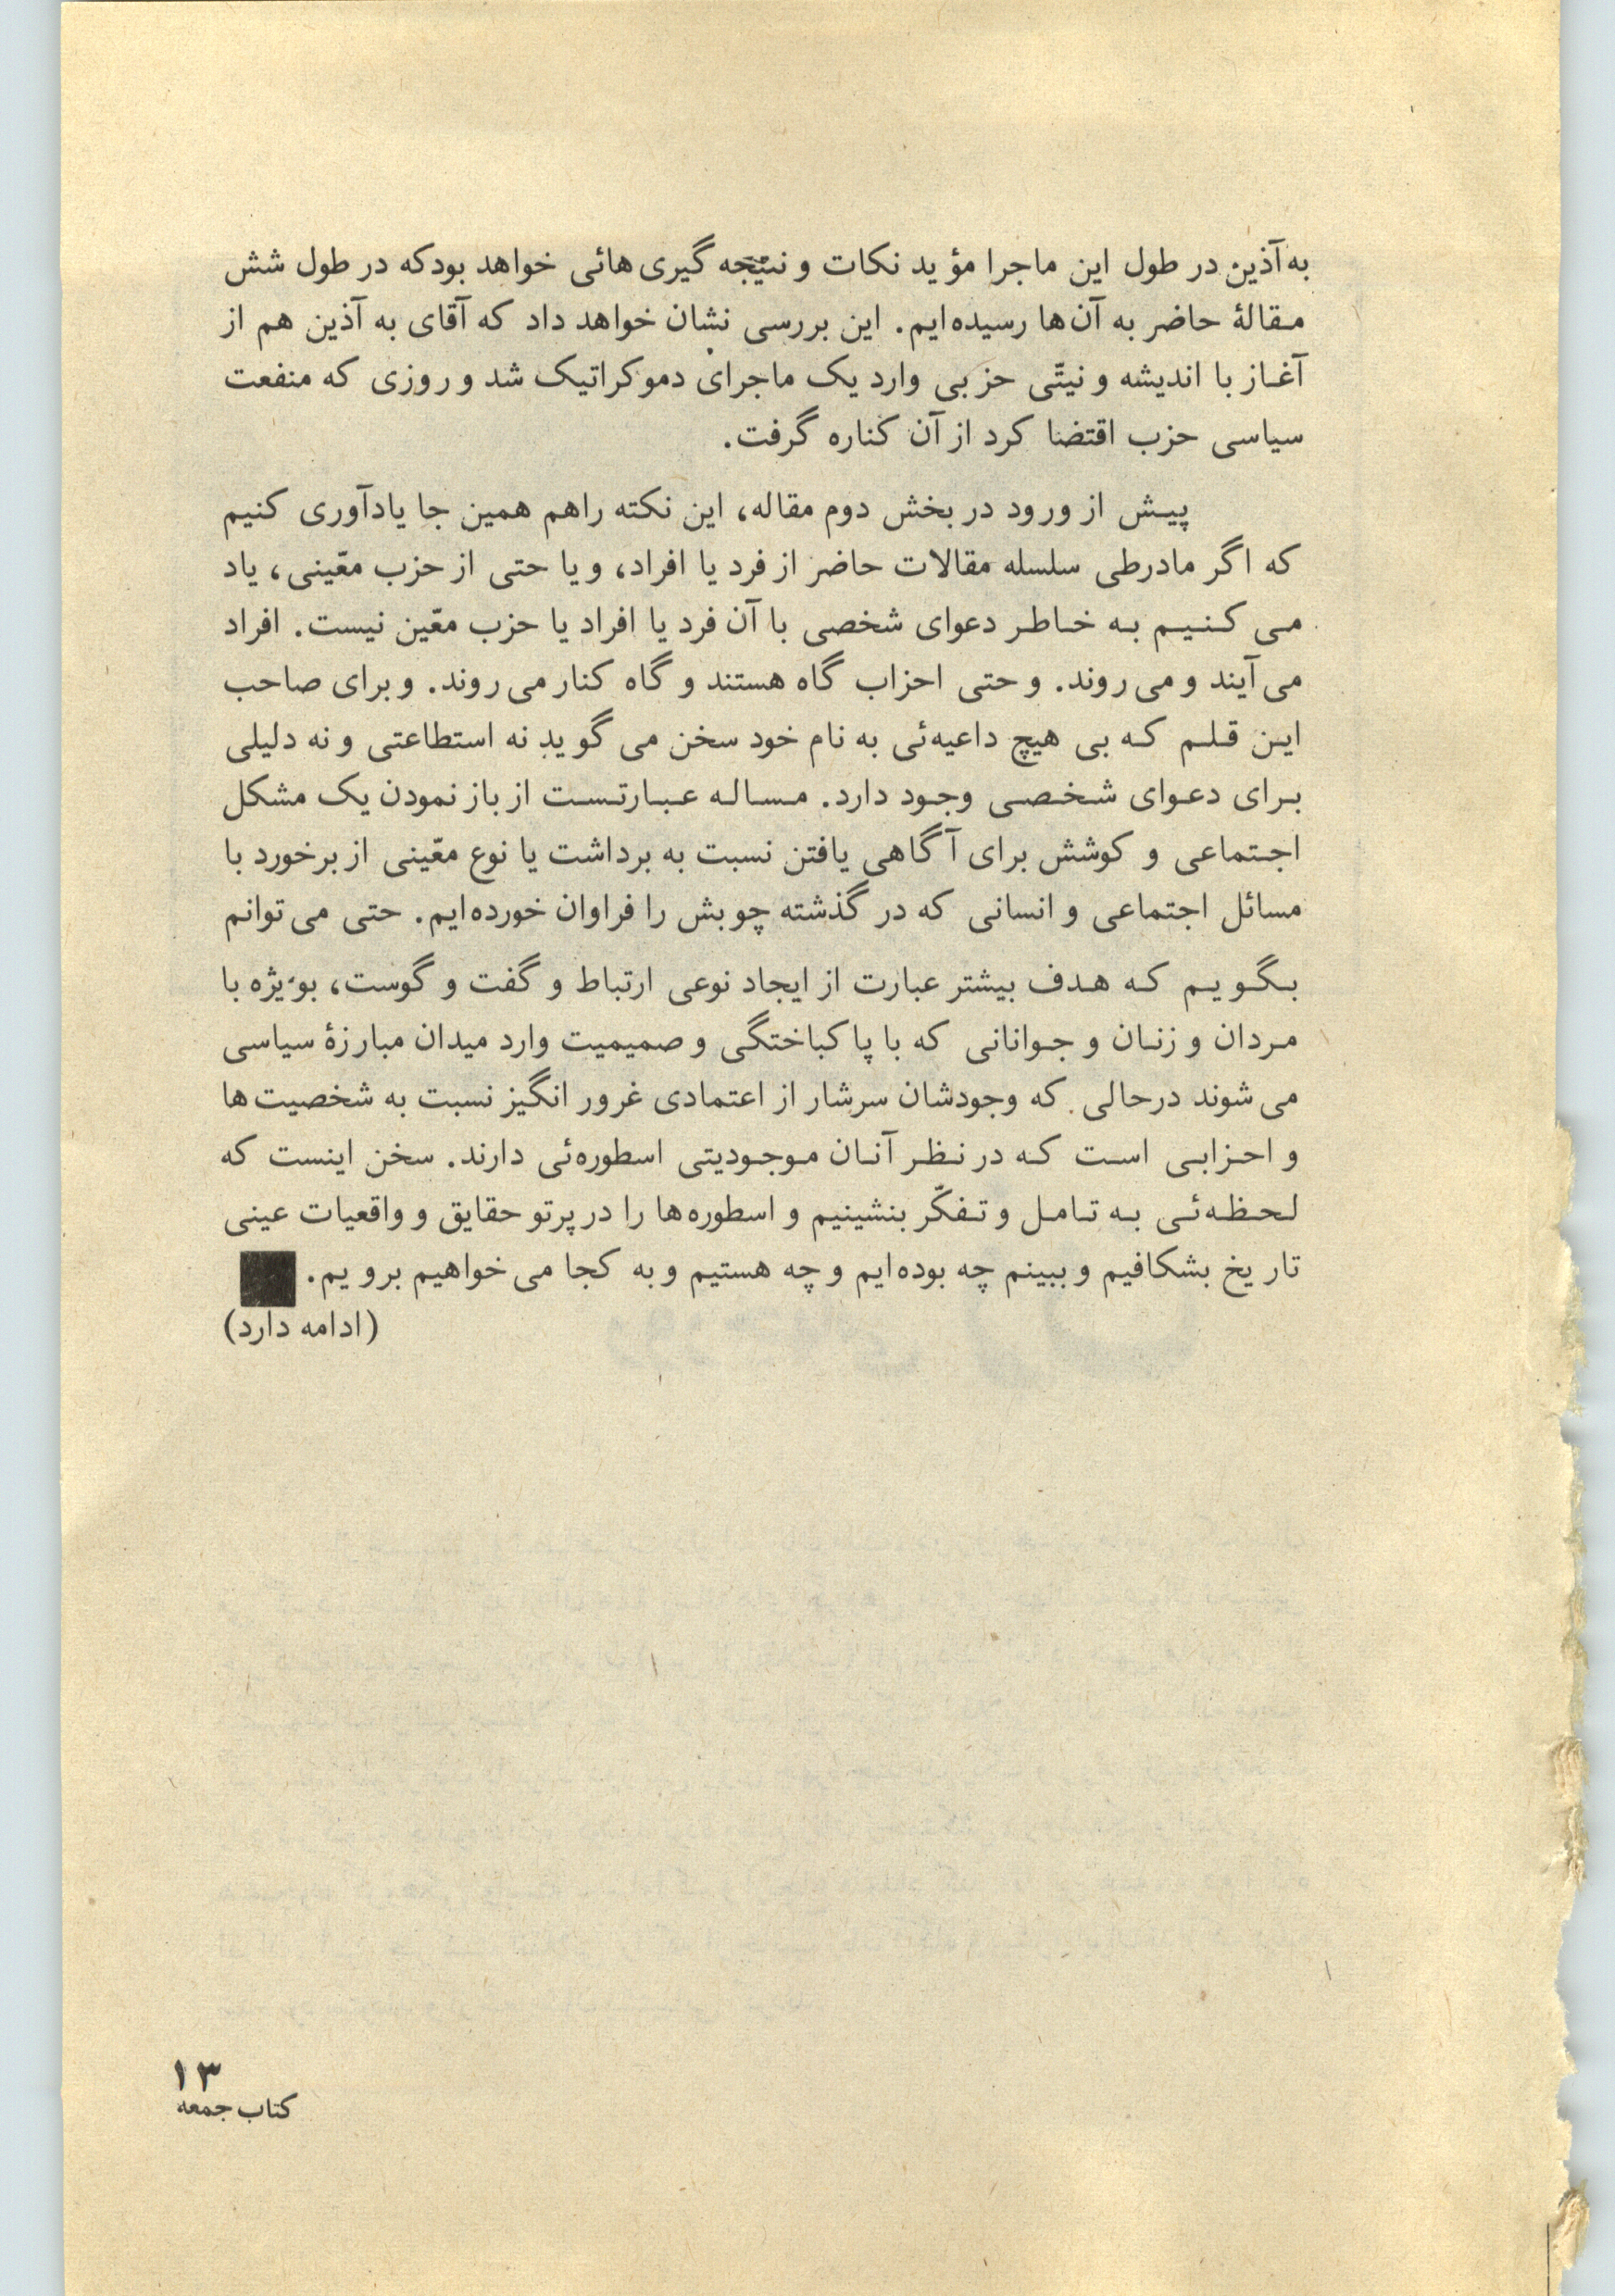 به‌آذین در طول این ماجرا مؤید نکات و نتیجه گیری‌هائی خواهد بودکه در طول شش
مقالهٔ حاضر به آن‌ها رسیده‌ایم. این بررسی نشان خواهد داد که آقای به آذین هم از
آغاز با اندیشه و نیتّی حزبی وارد یک ماجرای دموکراتیک شد و روزی که منفعت
سیاسی حزب اقتضا کرد از آن کناره گرفت.
پیش از ورود در بخش دوم مقاله، این نکته راهم همین جا یادآوری کنیم
که اگر مادرطی سلسله مقالات حاضر از فرد یا افراد، و یا حتی از حزب معّینی، یاد
می کنیم به خاطر دعوای شخصی با آن فرد یا افراد یا حزب معّین نیست. افراد
می‌آیند و می‌روند. و حتی احزاب گاه هستند و گاه کنار می‌روند. و برای صاحب
این قلم که بی هیچ داعیه‌ئی به نام خود سخن می گوید نه استطاعتی و نه دلیلی
برای دعوای شخصی وجود دارد. مساله عبارتست از باز نمودن یک مشکل
اجتماعی و کوشش برای آگاهی یافتن نسبت به برداشت یا نوع معّینی از برخورد با
مسائل اجتماعی و انسانی که در گذشته چوبش را فراوان خورده‌ایم. حتی می‌توانم
بگویم که هدف بیشتر عبارت از ایجاد نوعی ارتباط و گفت و گوست، بویژه با
مردان و زنان و جوانانی که با پاکباختگی و صمیمیت وارد میدان مبارزهٔ سیاسی
می‌شوند درحالی که وجودشان سرشار از اعتمادی غرور انگیز نسبت به شخصیت‌ها
و احزابی است که در نظر آنان موجودیتی اسطوره‌ئی دارند. سخن اینست که
لحظه‌ئی به تامل و تفکّر بنشینیم و اسطوره‌ها را در پرتو حقایق و واقعیات عینی
تاریخ بشکافیم و ببینم چه بوده‌ایم و چه هستیم و به کجا می‌خواهیم برویم.
(ادامه دارد)
۱۳
کتاب جمعه